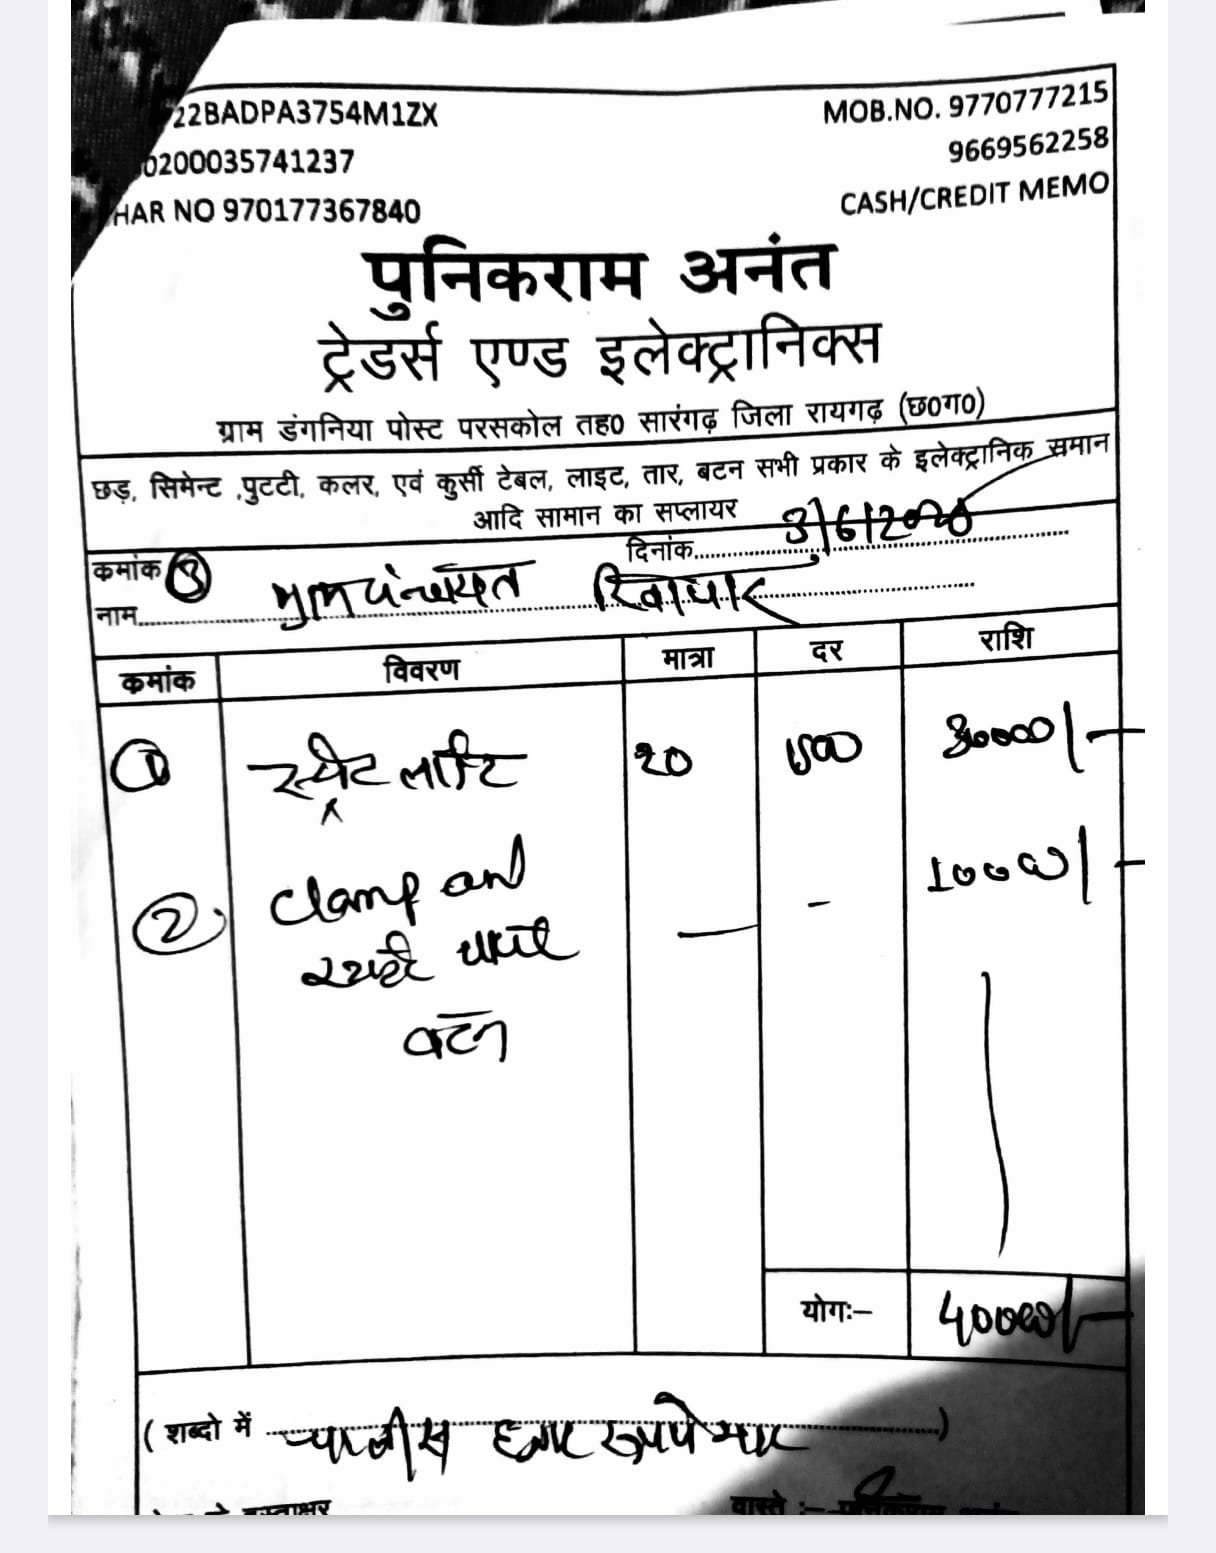 22BADPA3754M1ZX
MOB.NO. 9770777215
0200035741237
9669562258
HAR NO 970177367840
CASH/CREDIT MEMO
पुनिकराम अनंत
ट्रेडर्स एण्ड इलेक्ट्रानिक्स
ग्राम डंगनिया पोस्ट परसकोल तह0 सारंगढ़ जिला रायगढ़ (छ0ग0)
छड़, सिमेन्ट ,पुटटी, कलर, एवं कुर्सी टेबल, लाइट, तार, बटन सभी प्रकार के इलेक्ट्रानिक समान
आदि सामान का सप्लायर
दिनांक
कमांक
नाम
कमांक विवरण मात्रा दर राशि
1 स्ट्रीट लाईट 20 1500 30000/-
2 Clamp and - - 10000/-
बटन
योगः- 40000/-
( शब्दो में चालीस हजार रूपये मात्र )
हस्ताक्षर
वास्ते :- पुनिकराम अनंत